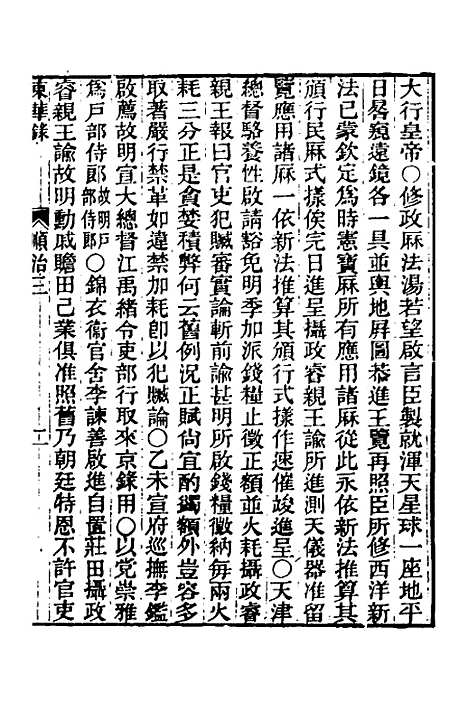 大行皇帝○修政厤法湯若望啟言臣製就渾天星球一座地平
日晷窺遠鏡各一具並輿地屏圖恭進王覽再照臣所修西洋新
法已蒙欽定爲時憲寶厤所有應用諸厤從此永依新法推算其
頒行民厤式樣俟完日進呈攝政睿親王諭所進測天儀器准留
覽應用諸厤一依新法推算其頒行式樣作速催竣進呈○天津
總督駱養性啟請豁免明季加派錢糧止徵正額並火耗攝政睿
親王報曰官吏犯贓審實論斬前諭甚明所啟錢糧徵納每兩火
耗三分正是貪婪積弊何云舊例況正賦尙宜酌蠲額外豈容多
取著嚴行禁革如違禁加耗卽以犯贓論○乙未宣府巡撫李鑑
啟薦故明宣大總督江禹緒令吏部行取來京錄用○以党崇雅
爲戶部侍郎故明戶部侍郎○錦衣衞官舍李諫善啟進自置莊田攝政
睿親王諭故明勳戚贍田己業俱准照舊乃朝廷特恩不許官吏
東華錄
順治三